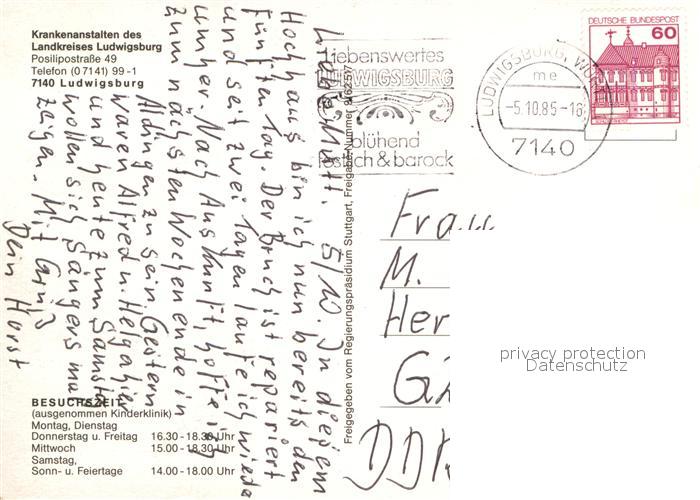 Krankenanstalten des
Landkreises Ludwigsburg
Posilipostraße 49
Telefon (0 71 41) 99 - 1
7140 Ludwigsburg
Liebenswertes
LUDWIGSBURG
blühend
festlich & barock
LUDWIGSBURG, WÜRTT
me
-5.10.85-18
7140
DEUTSCHE BUNDESPOST
60
5/10. In diesem
Hochhaus bin ich nun bereits den
fünften Tag. Der Bruch ist repariert
und seit zwei Tagen laufe ich wieder
umher. Nach Auskunft, hoffe ich
zum nächsten Wochenende in
Aldingen zu sein. Gestern
waren Alfred u. Helga hier
und heute zum Samstag
wollen sich Sängers mal
zeigen. Mit Gruß
Dein Horst
Freigegeben vom Regierungspräsidium Stuttgart, Freigabe-Nummer
Frau
M.
Her
DDR
privacy protection
Datenschutz
BESUCHSZEIT
(ausgenommen Kinderklinik)
Montag, Dienstag
Donnerstag u. Freitag 16.30 - 18.30 Uhr
Mittwoch 15.00 - 18.30 Uhr
Samstag,
Sonn- u. Feiertage 14.00 - 18.00 Uhr